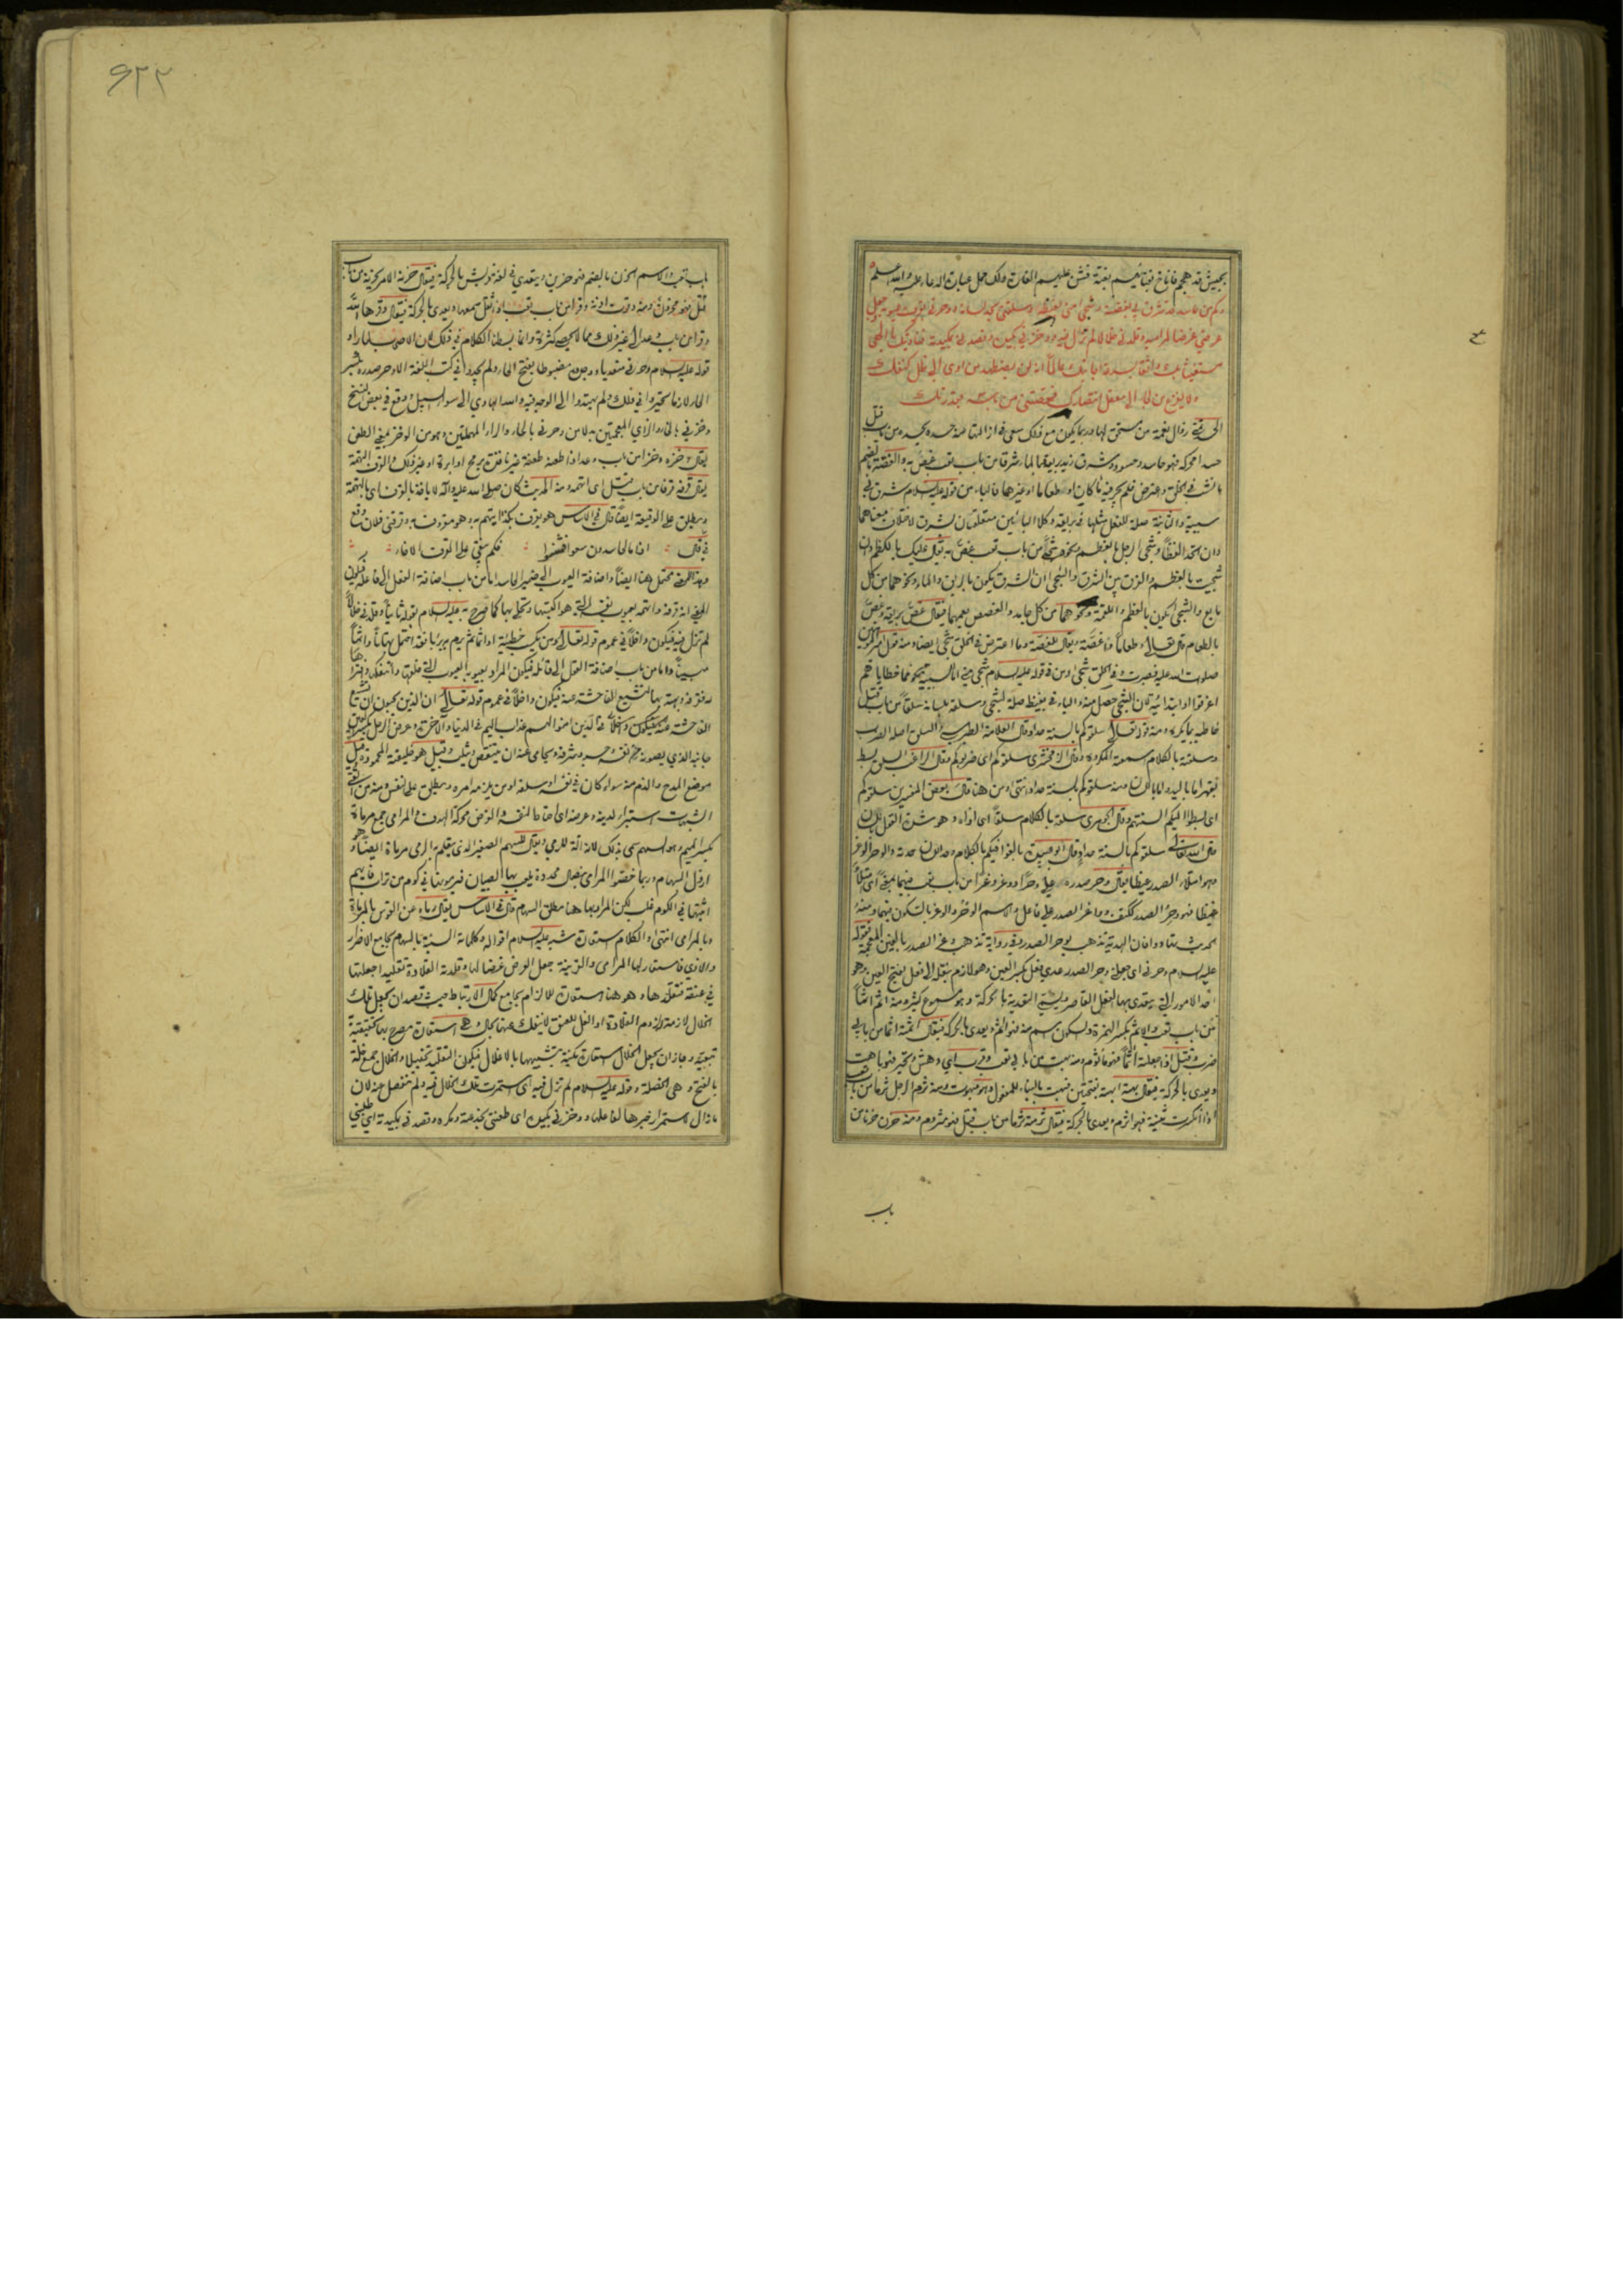 بجيش قد هجم فاناخ بفنائهم بغتة فشن عليهم الغارة ولك حمل عبارة الدعاء عليه والله اعلم
وكم من حاسد قد شرق بي بغصته وشجي مني بغيظه وسلقني بحد لسانه ووحرني بقرف عيوبه وجعل
عرضي غرضا لمراميه وقلدني خلالا لم تزل فيه ووخزني بكيده وقصدني بمكيدته فناديتك يا الهي
مستغيثا بك واثقا بسرعة اجابتك عالما انه لن يضطهد من اوى الى ظل كنفك
ولا يفزع من لجا الى معقل انتصارك فحصنتني من باسه بقدرتك
زوال نعمة من مستحق لها وربما يكون مع ذلك سعى في ازالتها حسده يحسده من باب قتل
حسدا محركة فهو حاسد وحسود وشرق زيد بريقه بالماء شرقا من باب تعب غص به والغصة بالضم
ما نشب في الحلق واعترض فلم يجر فيه ماء كان او طعاما او غيرها فالباء من قوله عليه السلام شرق بي
سببية والثانية صلة للفعل مثلها في بريقه وكلا البائين متعلقتان بشرق لاختلاف معناهما
وان اتحد اللفظ وشجي الرجل بالعظم ونحوه شجى من باب تعب غص به يقال عليك بالكظم وان
شجيت بالعظم والفرق بين الشرق والشجي ان الشرق يكون بالريق والماء ونحوهما من كل
مايع والشجى يكون بالعظم واللقمة ونحوهما من كل جامد والغصص يعمهما فيقال غص بريقه وغص
بالطعام قال تعالى وطعاما ذا غصة ويقال للغصة وما اعترض في الحلق شجى ايضا ومنه قول امير المؤمنين
صلوات الله عليه فصبرت وفي الحلق شجى ومن في قوله عليه السلام شجي مني اما للسببية نحو مما خطاياهم
اغرقوا او ابتدائية لان الشجى حصل منه والباء في بغيظه صلة لشجى وسلقه بلسانه سلقا من باب قتل
خاطبه بما يكره ومنه قوله تعالى سلقوكم بالسنة حداد قال العلامة الطبرسي السلق اصله الضرب
وسلقته بالكلام اسمعته المكروه وقال الزمخشري سلقوكم اي ضربوكم وقال الراغب السلق بسط
بقهر اما باليد او باللسان ومنه سلقوكم بالسنة حداد انتهى ومن هنا قال بعض المفسرين سلقوكم
اي بسطوا اليكم السنتهم وقال الجوهري سلقه بالكلام سلقا اي اذاه وهو شدة القول باللسان
قال الله تعالى سلقوكم بالسنة حداد قال ابو عبيدة بالغوا فيكم بالكلام وحد اللسان حدته والوحر الوغر
وهو امتلاء الصدر غيظا يقال وحر صدره علي وحرا ووغر وغرا من باب تعب فيهما بمعنى اي امتلأ
غيظا فهو وحر الصدر ككتف وواغر الصدر على فاعل والاسم الوحر والوغر بالسكون فيهما ومنه
الحديث تهادوا فان الهدية تذهب بوحر الصدر وفي رواية تذهب وغر الصدر بالغين المعجمة فقوله
عليه السلام وحرني اي جعلني وحر الصدر عدي فعل بكسر العين وهو لازم بنقله الى فعل بفتح العين وهو
احد الامور التي يتعدى بها الفعل القاصر ويسمى التعدية بالحركة وهو مسموع كثير ومنه اثم اثما
من باب تعب والاثم بكسر الهمزة وسكون اسم منه فهو اثم ويعدى بالحركة فيقال اثمته اثما من بابي
ضرب وقتل اذا جعلته اثما فهو ماثوم ومنه بهت من بابي تعب وقرب اي دهش وتحير فهو باهت
ويعدى بالحركة فيقال بهته ابهته بفتحتين فبهت بالبناء للمفعول وهو مبهوت ومنه ثرم الرجل ثرما من باب تعب
اذا انكسرت ثنيته فهو اثرم ويعدى بالحركة فيقال ثرمته ثرما من باب قتل فهو مثروم ومنه حزن حزنا من
باب
۶۲۲
باب تعب والاسم الحزن بالضم فهو حزين ويتعدى في لغة قريش بالحركة فيقال حزنه الامر يحزنه من باب
قتل فهو محزون ومنه وقرت اذنه وقرا من باب تعب اذا ثقل سمعها ويعدى بالحركة فيقال وقرها الله
وقرا من باب وعد الى غير ذلك مما لا يحصى كثرة وانما بسطنا الكلام في ذلك لان الاصحاب لما راوا
قوله عليه السلام وحرني متعديا ووجدوه مضبوطا بفتح الحاء ولم يجدوا في كتب اللغة الا وحر صدره بكسر
الحاء لازما تحيروا في ذلك ولم يهتدوا الى الوجه فيه والله الهادي الى سواء السبيل ووقع في بعض النسخ
وخزني بالخاء والزاي المعجمتين بدلا من وحرني بالحاء والراء المهملتين وهو من الوخز بمعنى الطعن
يقال وخزه وخزا من باب وعد اذا طعنه طعنة غير نافذة برمح او ابرة او غير ذلك والقرف التهمة
يقال قرفه قرفا من باب قتل اي اتهمه ومنه الحديث كان صلى الله عليه واله لا ياخذ بالقرف اي بالتهمة
ويطلق على الوقيعة ايضا قال في الاساس هو يقرف بكذا يتهم به وهو مقروف به وقرفني فلان وقع
في قال اذا ما الحاسدون سعوا فشنوا فكم يبقى على القرف الاخاء
وهذا المعنى محتمل هنا ايضا واضافة العيوب الى ضمير الحاسد اما من باب اضافة الفعل الى فاعله فيكون
المعنى انه قرفه واتهمه بعيوب نفسه التي هو اكتسبها وتحلى بها كما صرح به عليه السلام بقوله ثانيا وقلدني خلالا
لم تزل فيه فيكون داخلا في عموم قوله تعالى ومن يكسب خطيئة او اثما ثم يرم به بريئا فقد احتمل بهتانا واثما
مبينا واما من باب اضافة الفعل الى قائله فيكون المراد بعيوبه العيوب التي خلقها وائتفكها وافتراها
له فقرفه وبهته بها لتشيع الفاحشة عنه فيكون داخلا في عموم قوله تعالى ان الذين يحبون ان تشيع
الفاحشة في الذين امنوا لهم عذاب اليم في الدنيا والآخرة وعرض الرجل بكسر العين
جانبه الذي يصونه من نفسه وحسبه وشرفه ويحامي عنه ان ينتقص ويثلب وقيل هو خليقته المحمودة وقيل
موضع المدح والذم منه سواء كان في نفسه او سلفه او من يلزمه امره ويطلق على النفس ومنه من اتقى
الشبهات استبرا لدينه وعرضه اي احتاط لنفسه والغرض محركة الهدف والمرامي جمع مرماة
بكسر الميم وهو السهم سمي بذلك لانه آلة للرمي ويقال للسهم الصغير الذي يتعلم به الرمي مرماة ايضا وهو
ارذل السهام وربما خصوا المرامي بنصال محددة يلعب بها الصبيان فيرمون بها في كوم من تراب فايهم
اثبتها في الكوم غلب لكن المراد بها هنا مطلق السهام قال في الاساس يقال رماه عن القوس بالمرماة
وبالمرامي انتهى والكلام استعارة شبه عليه السلام اقواله وكلماته السيئة بالسهام بجامع الاضرار
والاذى فاستعار لها المرامي والقرينة جعل العرض غرضا لها وقلدته القلادة تقليدا جعلتها
في عنقه فتقلدها وهو هنا استعارة للالزام بجامع كمال الارتباط حيث قصد ان يجعل تلك
الخلال لازمة لزوم القلادة او الغل للعنق لا ينفك عنها بحال وهي استعارة مصرح بها تحقيقية
تبعية وجاز ان يجعل الخلال استعارة مكنية بتشبيهها بالاغلال فيكون التقليد تخييلا والخلال جمع خلة
بالفتح وهي الخصلة وقوله عليه السلام لم تزل فيه اي استمرت تلك الخلال فيه ولم تنفصل عنه لان
ما زال لاستمرار خبرها لفاعلها ووخزني بكيده اي طعنني بخدعته ومكره وقصدني بمكيدته اي طلبني